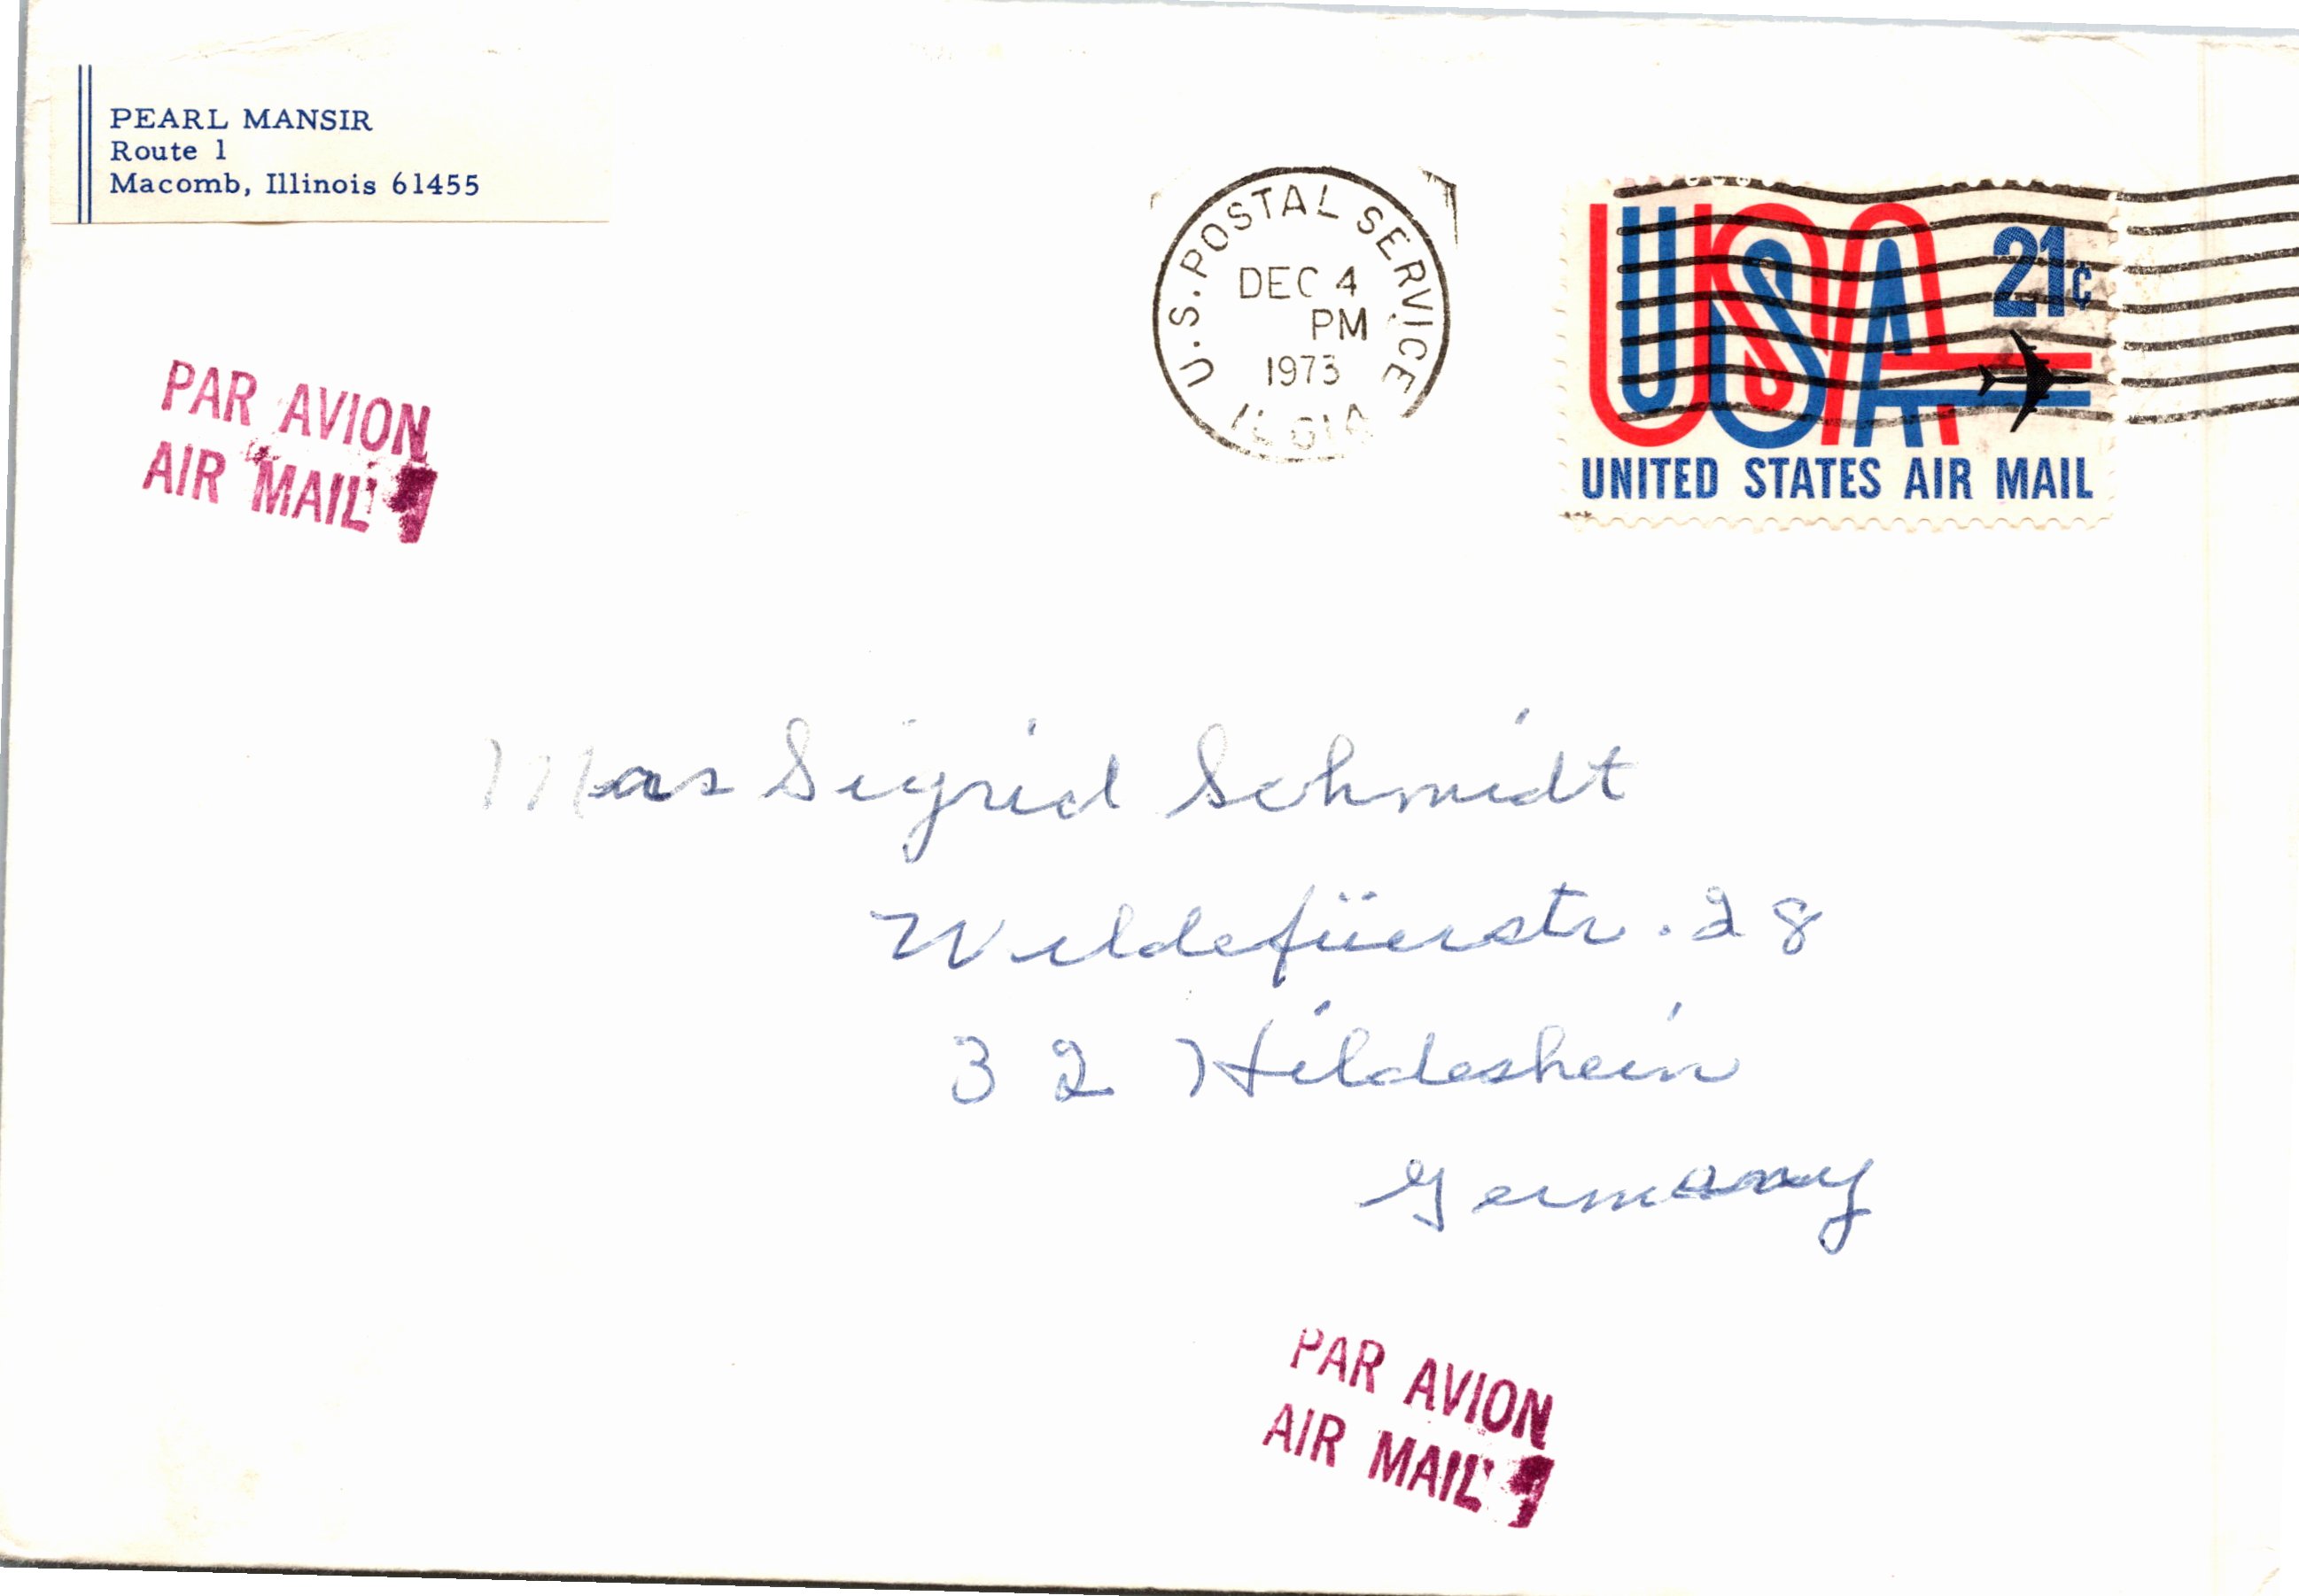 PEARL MANSIR
Route 1
Macomb, Illinois 61455
U.S. POSTAL SERVICE
DEC 4
PM
1973
USA
21¢
UNITED STATES AIR MAIL
PAR AVION
AIR MAIL
Mrs Sigrid Schmidt
Wildefüerstr. 28
32 Hildesheim
Germany
PAR AVION
AIR MAIL